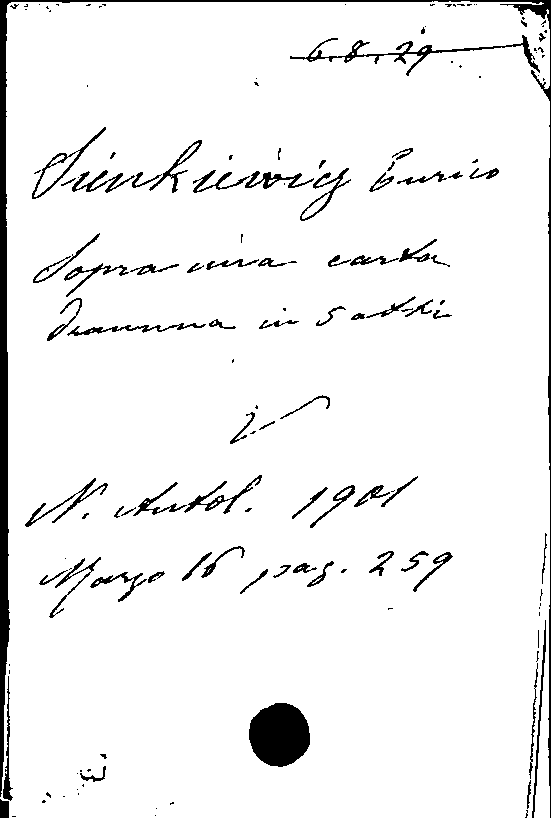 6.8.29
Sienkiewicz Enrico
Sopra una carta
dramma in 5 atti
N. Antol. 1901
Marzo 16 pag. 259